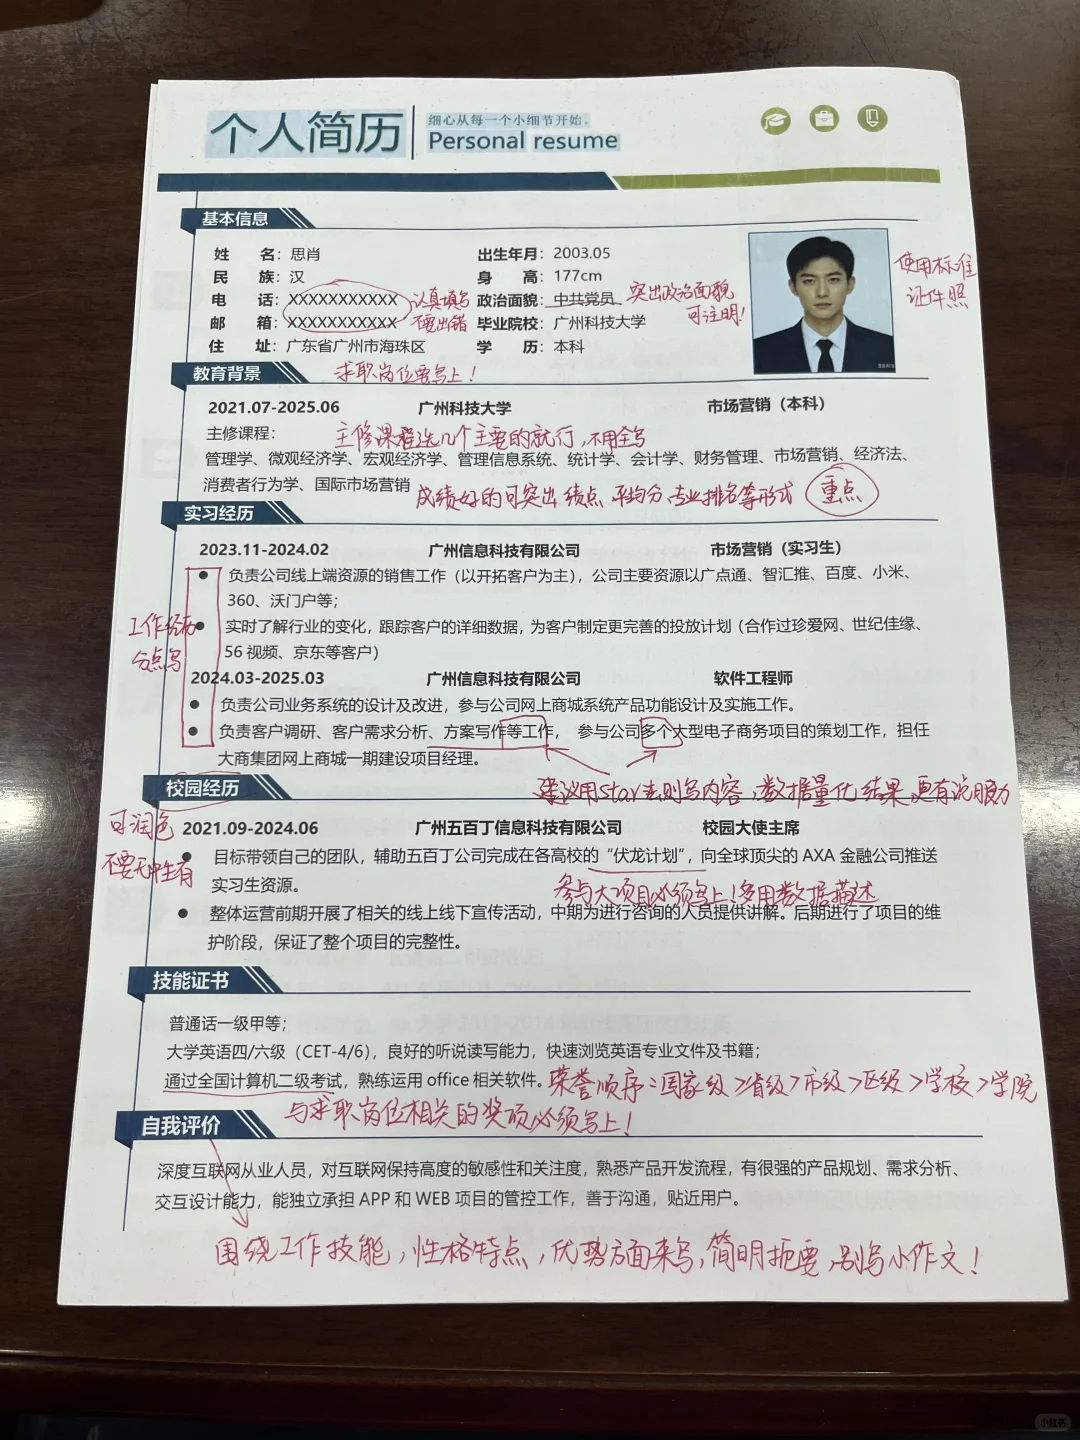 个人简历
细心从每一个小细节开始。
Personal resume
基本信息
姓 名：思肖
出生年月：2003.05
民 族：汉
身 高：177cm
使用标准
证件照
电 话：XXXXXXXXXXX
认真填写
不要出错
政治面貌：中共党员
突出政治面貌
可注明！
邮 箱：XXXXXXXXXXX
毕业院校：广州科技大学
住 址：广东省广州市海珠区
学 历：本科
教育背景
求职岗位要写上！
2021.07-2025.06 广州科技大学 市场营销（本科）
主修课程：
主修课程选几个主要的就行，不用全写
管理学、微观经济学、宏观经济学、管理信息系统、统计学、会计学、财务管理、市场营销、经济法、
消费者行为学、国际市场营销
成绩好的可突出 绩点、平均分、专业排名等形式 重点
实习经历
2023.11-2024.02 广州信息科技有限公司 市场营销（实习生）
负责公司线上端资源的销售工作（以开拓客户为主），公司主要资源以广点通、智汇推、百度、小米、
360、沃门户等；
工作经历
分点写
实时了解行业的变化，跟踪客户的详细数据，为客户制定更完善的投放计划（合作过珍爱网、世纪佳缘、
56 视频、京东等客户）
2024.03-2025.03 广州信息科技有限公司 软件工程师
负责公司业务系统的设计及改进，参与公司网上商城系统产品功能设计及实施工作。
负责客户调研、客户需求分析、方案写作等工作， 参与公司多个大型电子商务项目的策划工作，担任
大商集团网上商城一期建设项目经理。
建议用star法则写内容，数据量化结果，更有说服力
校园经历
可润色
不要无中生有
2021.09-2024.06 广州五百丁信息科技有限公司 校园大使主席
目标带领自己的团队，辅助五百丁公司完成在各高校的“伏龙计划”，向全球顶尖的 AXA 金融公司推送
实习生资源。
参与大项目必须写上！多用数据描述
整体运营前期开展了相关的线上线下宣传活动，中期为进行咨询的人员提供讲解。后期进行了项目的维
护阶段，保证了整个项目的完整性。
技能证书
普通话一级甲等；
大学英语四/六级（CET-4/6），良好的听说读写能力，快速浏览英语专业文件及书籍；
通过全国计算机二级考试，熟练运用 office 相关软件。
荣誉顺序：国家级>省级>市级>区级>学校>学院
与求职岗位相关的奖项必须写上！
自我评价
深度互联网从业人员，对互联网保持高度的敏感性和关注度，熟悉产品开发流程，有很强的产品规划、需求分析、
交互设计能力，能独立承担 APP 和 WEB 项目的管控工作，善于沟通，贴近用户。
围绕工作技能，性格特点，优势方面来写，简明扼要，别写小作文！
小红书